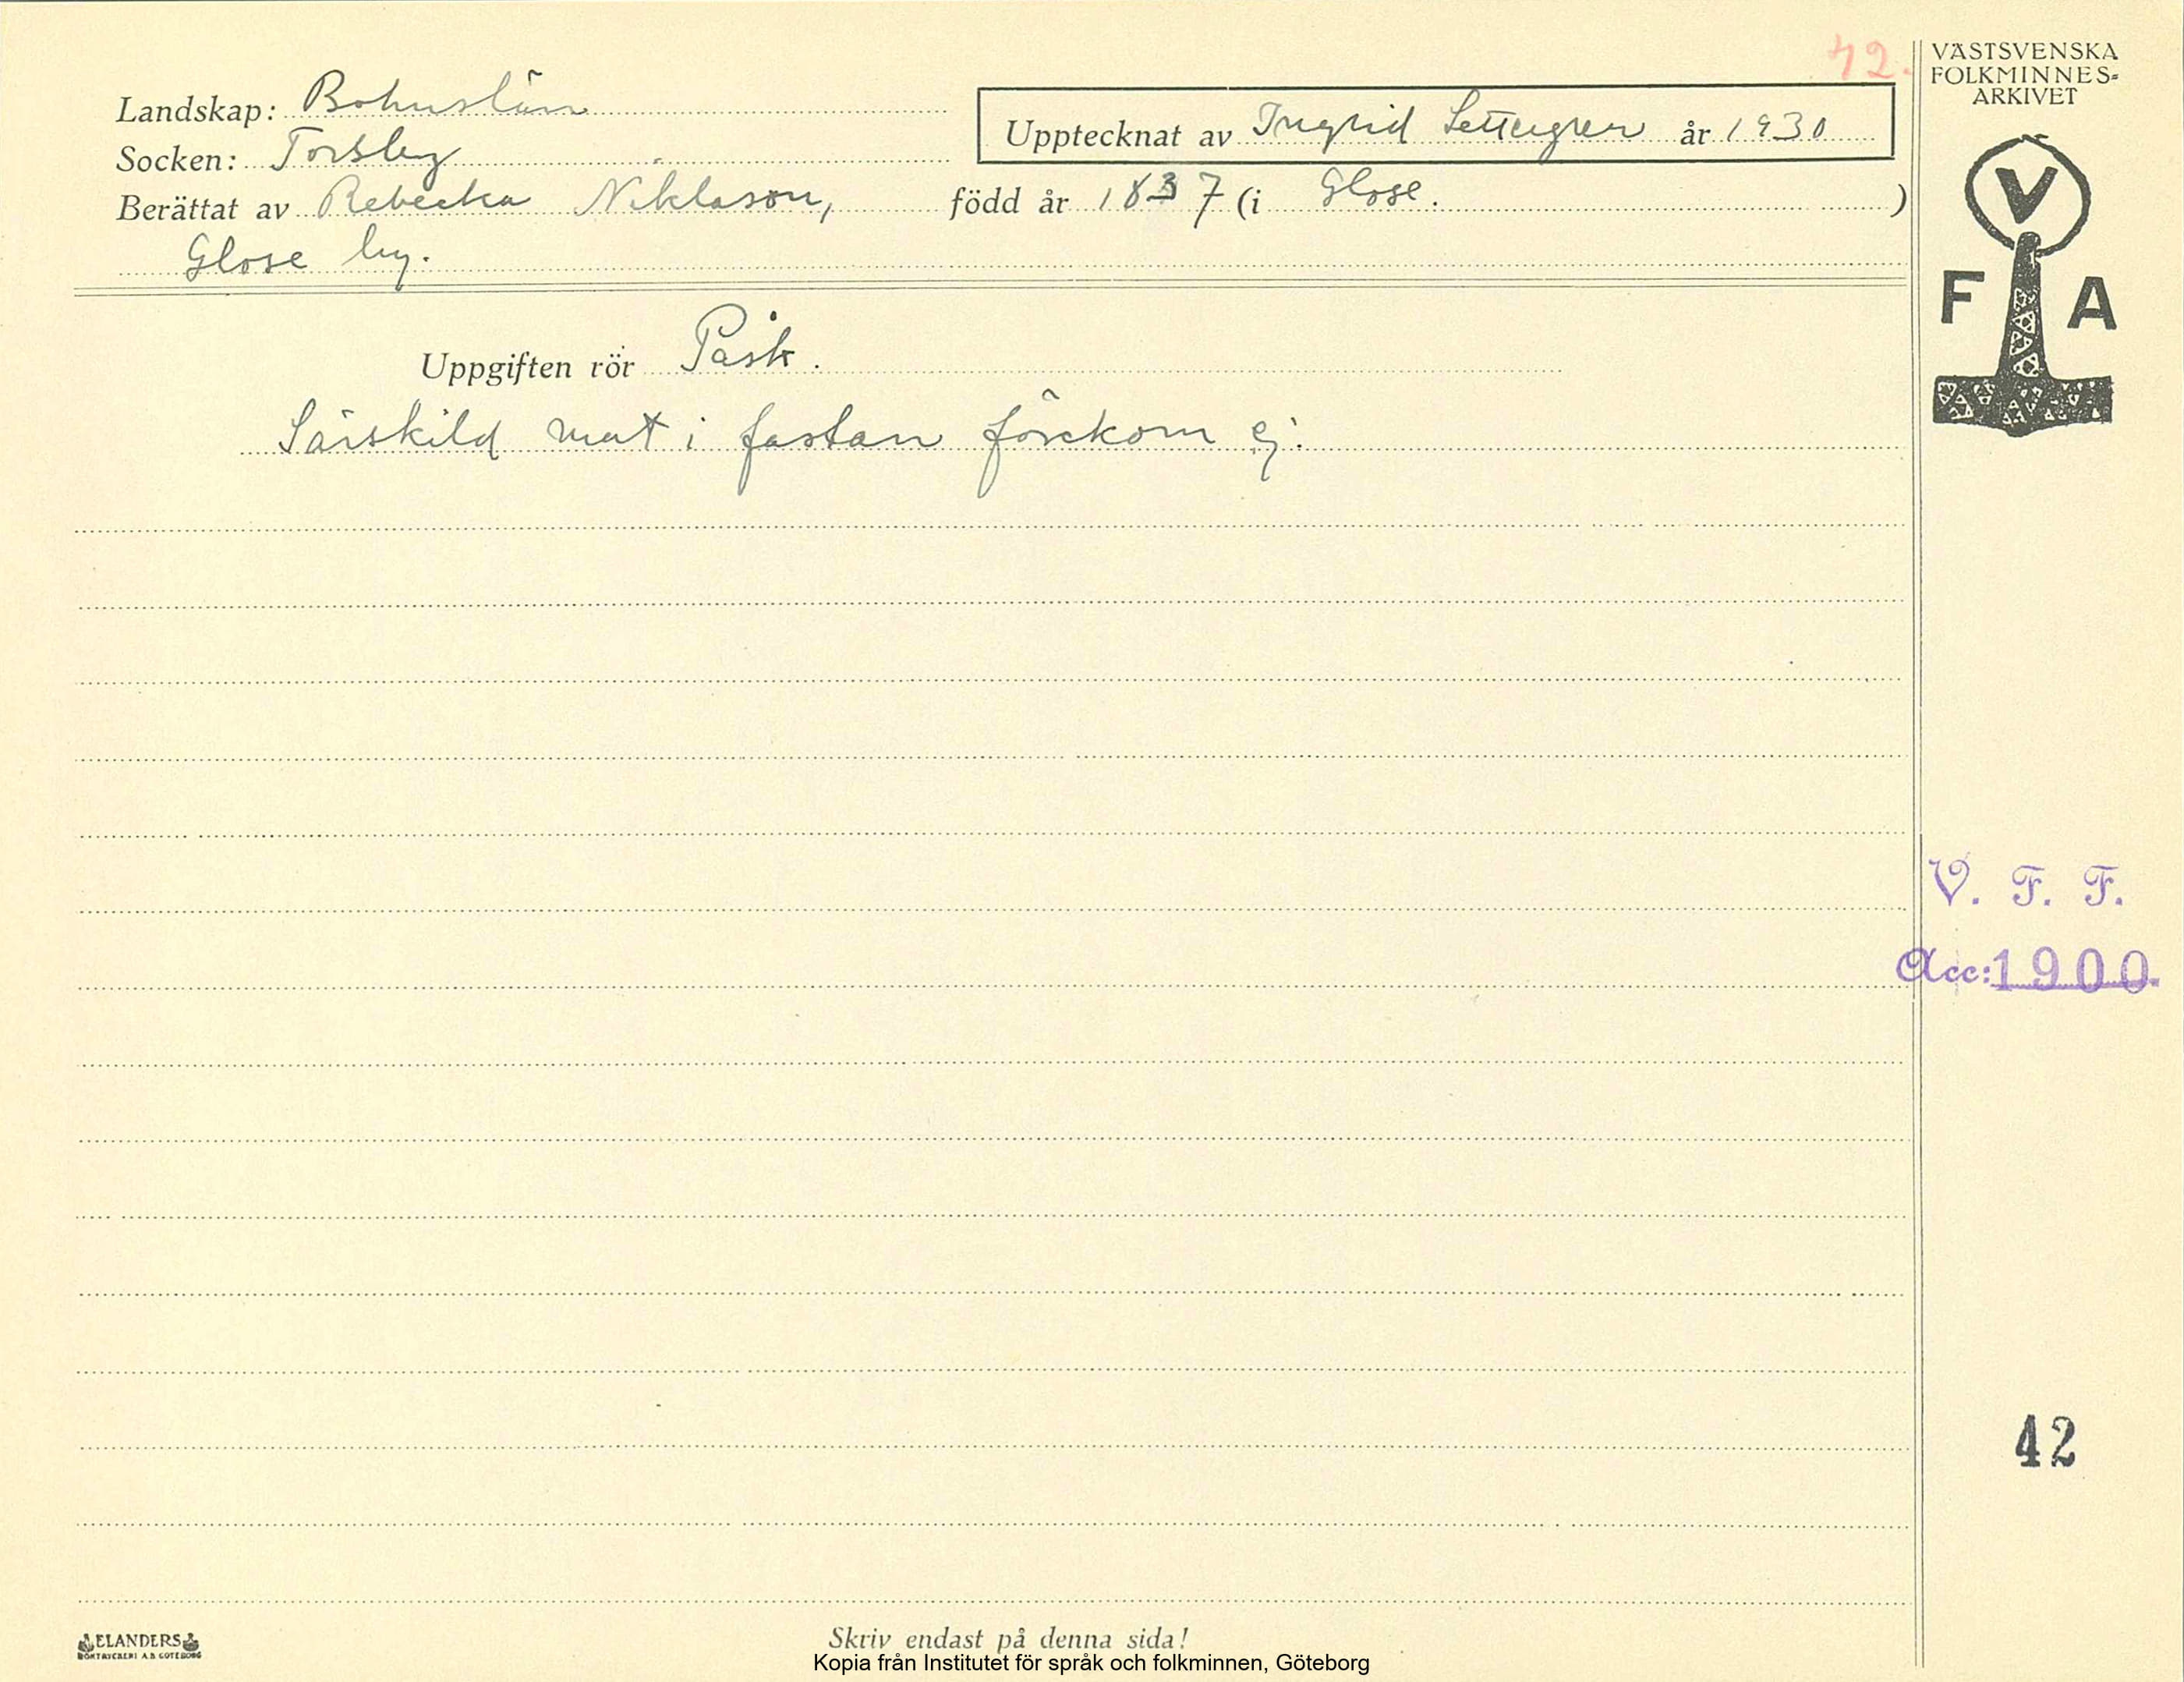 42.
VÄSTSVENSKA
FOLKMINNES-
ARKIVET
Landskap: Bohuslän
Upptecknat av Ingrid Settergren år 1930
Socken: Torsby
Berättat av Rebecka Niklason, född år 1837 (i Glose. )
Glose by.
V
F A
Uppgiften rör Påsk.
Särskild mat i fastan förekom ej.
V. F. F.
Acc: 1900.
42
ELANDERS
BOKTRYCKERI A.B. GÖTEBORG
Skriv endast på denna sida!
Kopia från Institutet för språk och folkminnen, Göteborg